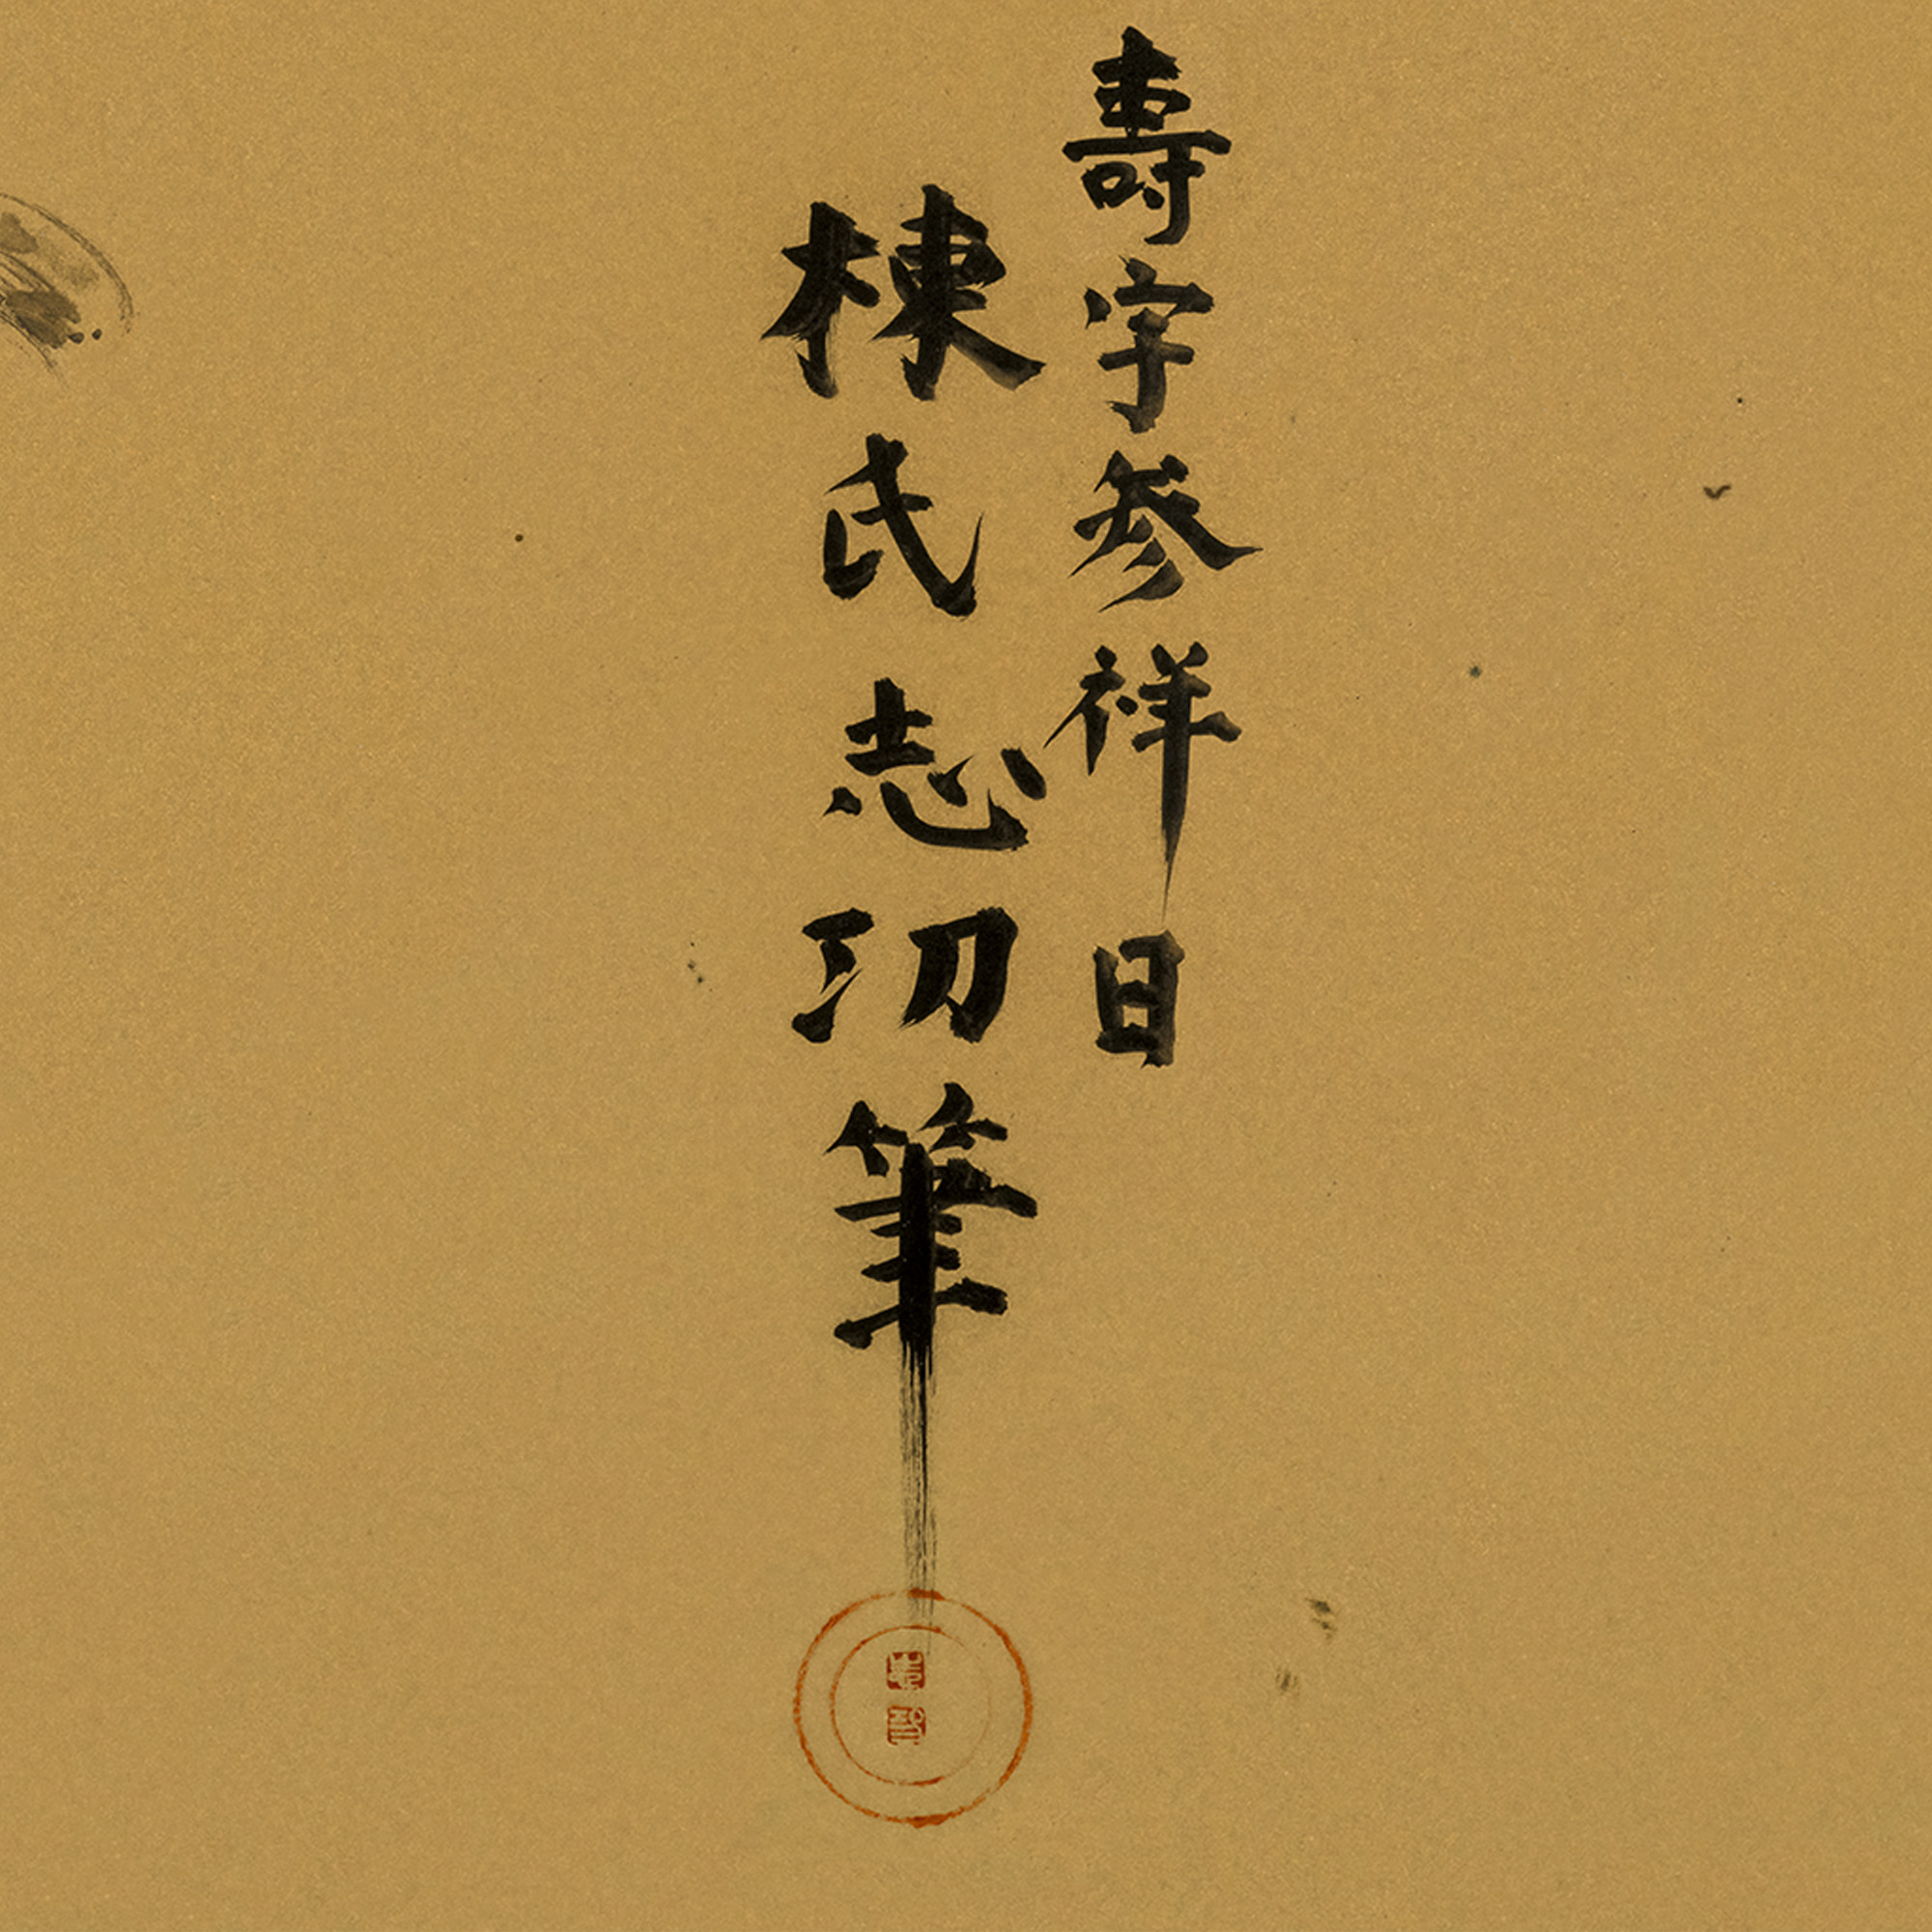 壽字参祥日
棟氏志㓛筆